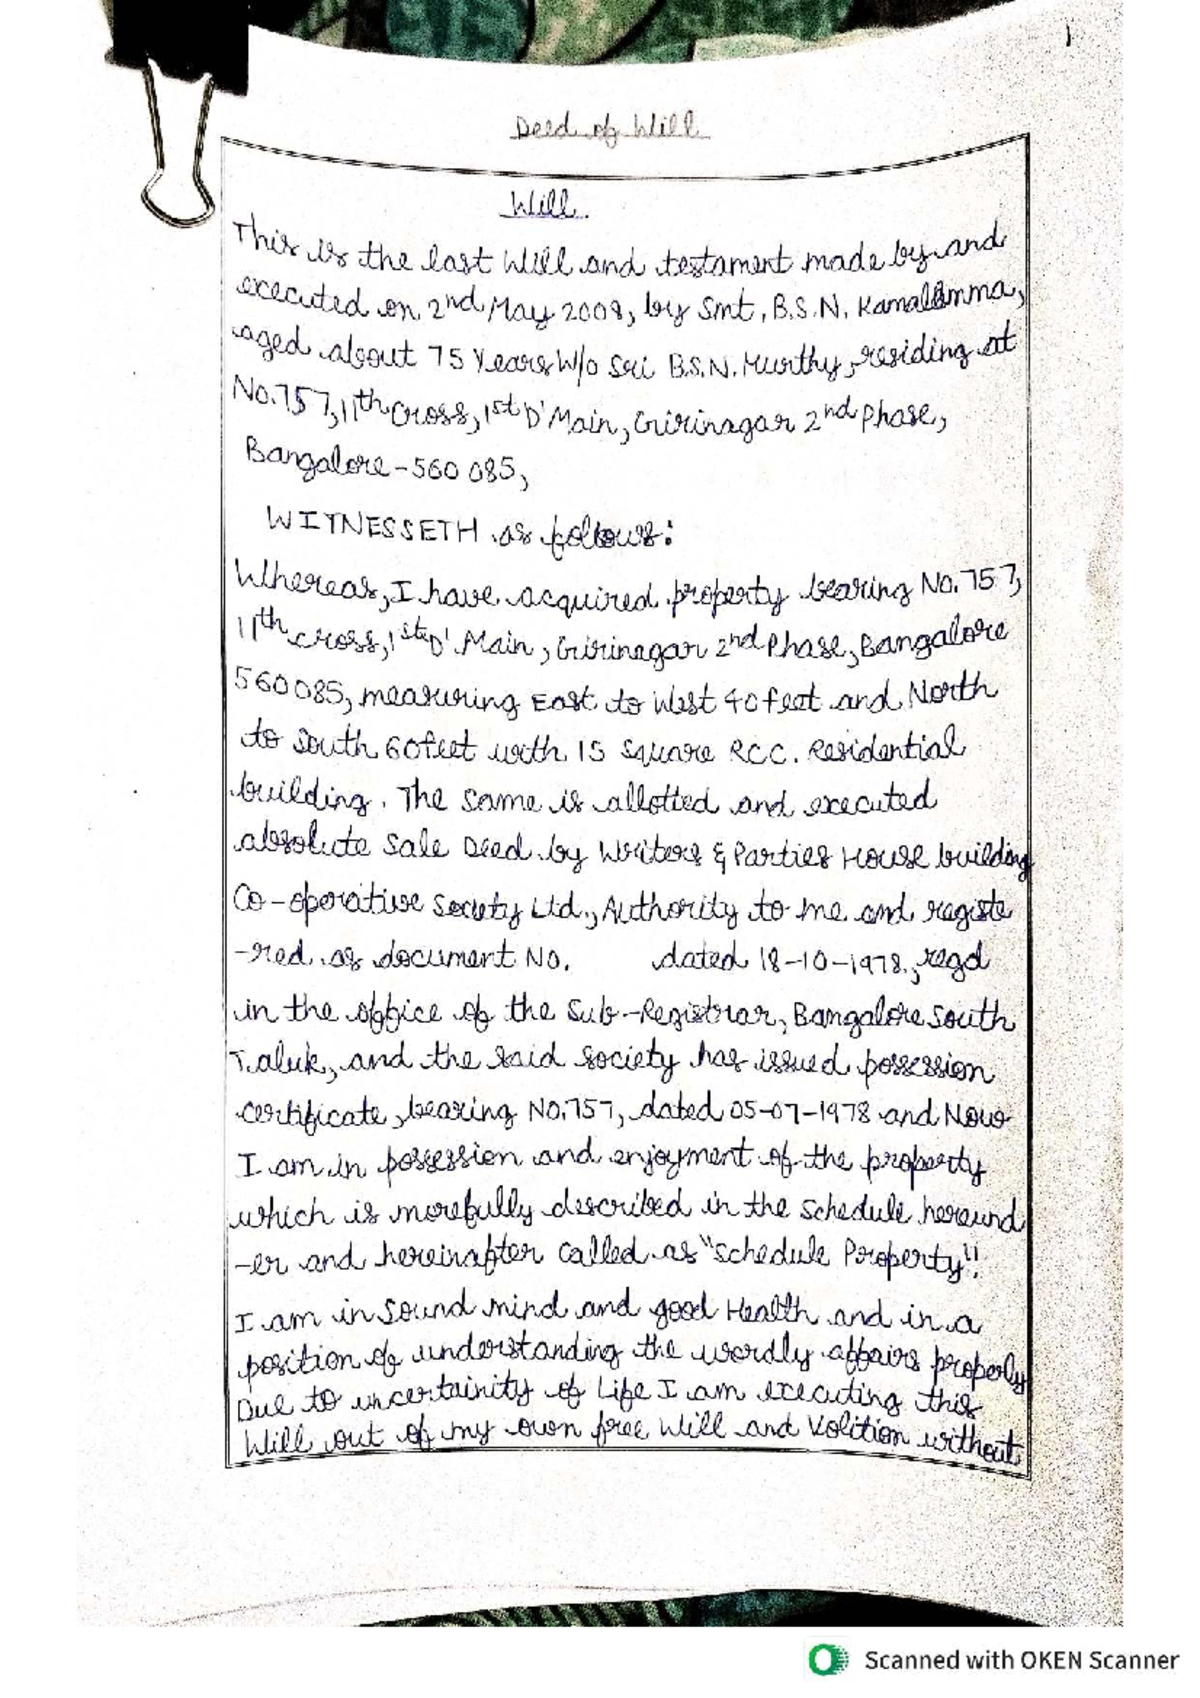 1
Deed of Will
Will.
This is the last Will and testament made by and
executed on 2nd May 2008, by Smt, B.S.N. Kamalamma,
aged about 75 Years W/o Sri B.S.N. Murthy, residing at
No.757, 11th Cross, 1st 'D' Main, Girinagar 2nd Phase,
Bangalore-560 085,
WITNESSETH as follows:
Whereas, I have acquired property bearing No. 757,
11th cross, 1st 'D' Main, Girinagar 2nd Phase, Bangalore
560085, measuring East to West 40 feet and North
to South 60 feet with 15 Square RCC. Residential
building. The same is allotted and executed
absolute Sale Deed by Writers & Parties House building
Co-operative Society Ltd., Authority to me and registe
-red as document No. dated 18-10-1978, regd
in the office of the Sub-Registrar, Bangalore South
Taluk, and the said society has issued possession
certificate, bearing No.757, dated 05-07-1978 and Now
I am in possession and enjoyment of the property
which is morefully described in the Schedule hereund
-er and hereinafter called as "Schedule Property".
I am in Sound mind and good Health and in a
position of understanding the wordly affairs properly
Due to uncertainity of Life I am executing this
Will out of my own free Will and Volition without
Scanned with OKEN Scanner